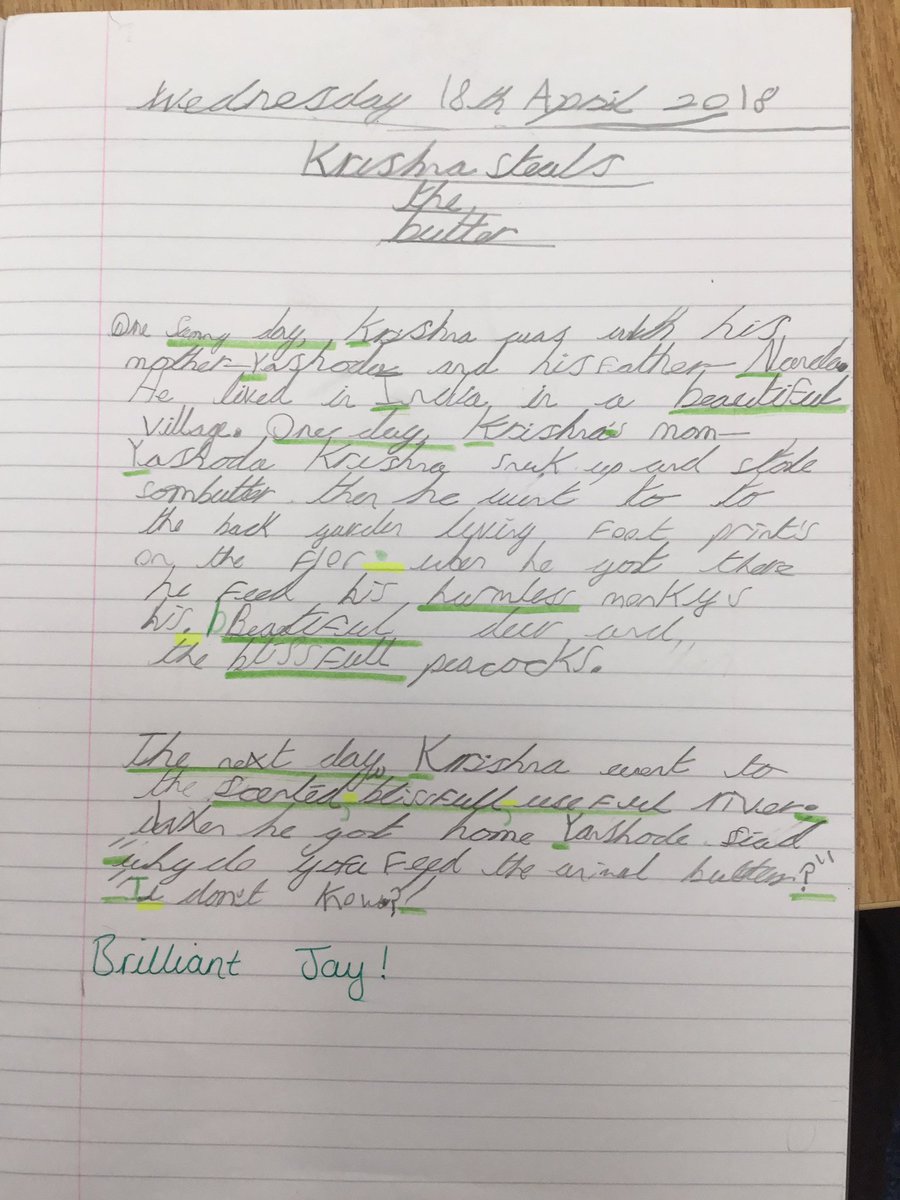 Wednesday 18th April 2018
Krishna steals
the
butter
One sunny day, Krishna was with his
mother-Yashoda and his father- Nanda.
He lived in India, in a beautiful
village. One day, Krishna's mom-
Yashoda Krishna snuk up and stole
som butter. then he went to to
the back garden leving Foot print's
on the Flor. when he got there
he Feed his harmless monkys
his. bBeautiFul, deer and,
the blissFull peacocks.
The next day, Krishna went to
the scented, blissFull, useFul river.
when he got home Yashode siad
"why do you Feed the animal butter?"
"I don't Kow?"
Brilliant Jay!